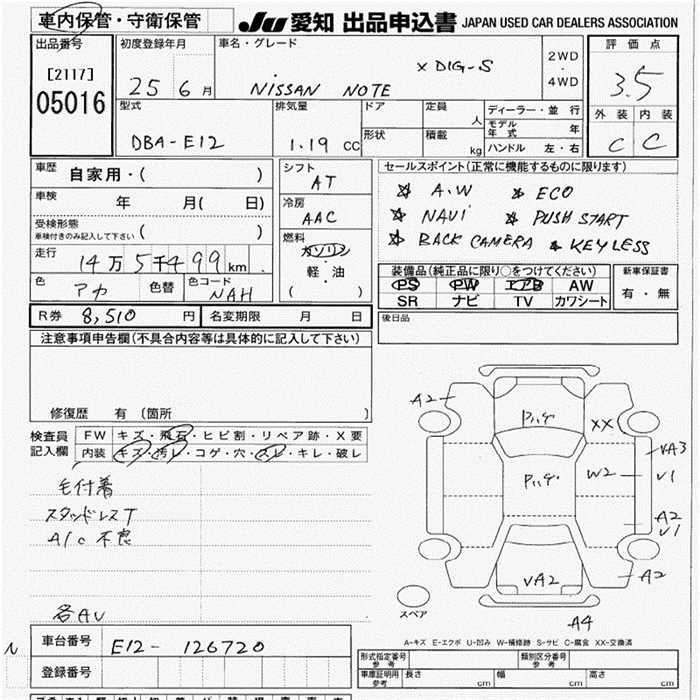 車内保管・守衛保管 JU 愛知 出品申込書 JAPAN USED CAR DEALERS ASSOCIATION
出品番号 初度登録年月 車名・グレード 評価点
[2117] 25 6 月 NISSAN NOTE X DIG-S 2WD ・ 4WD 3.5
05016 型式 排気量 ドア 定員 人 ディーラー・並行 外装 内装
DBA-E12 1.19 CC 形状 積載 kg モデル年式 年 C C
ハンドル 左・右
車歴 自家用・( ) シフト AT セールスポイント(正常に機能するものに限ります)
車検 年 月( 日) 冷房 AAC ☆ A.W ☆ ECO
受検形態 ☆ NAVI ☆ PUSH START
車検付きのみ記入して下さい ( ) 燃料 ガソリン ☆ BACK CAMERA ☆ KEYLESS
走行 14万5千499km 軽・油
( )
装備品(純正品に限り○をつけてください) 新車保証書
色 アカ 色替 色コード NAH PS PW エアB AW 有・無
SR ナビ TV カワシート
R券 8,510 円 名変期限 月 日 後日品
注意事項申告欄(不具合内容等は具体的に記入して下さい)
修復歴 有 (箇所 )
検査員 FW キズ・飛石・ヒビ割・リペア跡・X要
記入欄 内装 キズ・汚レ・コゲ・穴・スレ・キレ・破レ
毛付着
スタッドレスT
A/C不良
各AV
A2
XX
VA3
W2 V1
A2
V1
VA2 A2
スペア
A4
A-キズ E-エクボ U-凹み W-補修跡 S-サビ C-腐食 XX-交換済
N 車台番号 E12-126720
登録番号
形式指定番号 参考 類別区分番号 参考
車庫証明用 参考 長さ cm 幅 cm 高さ cm